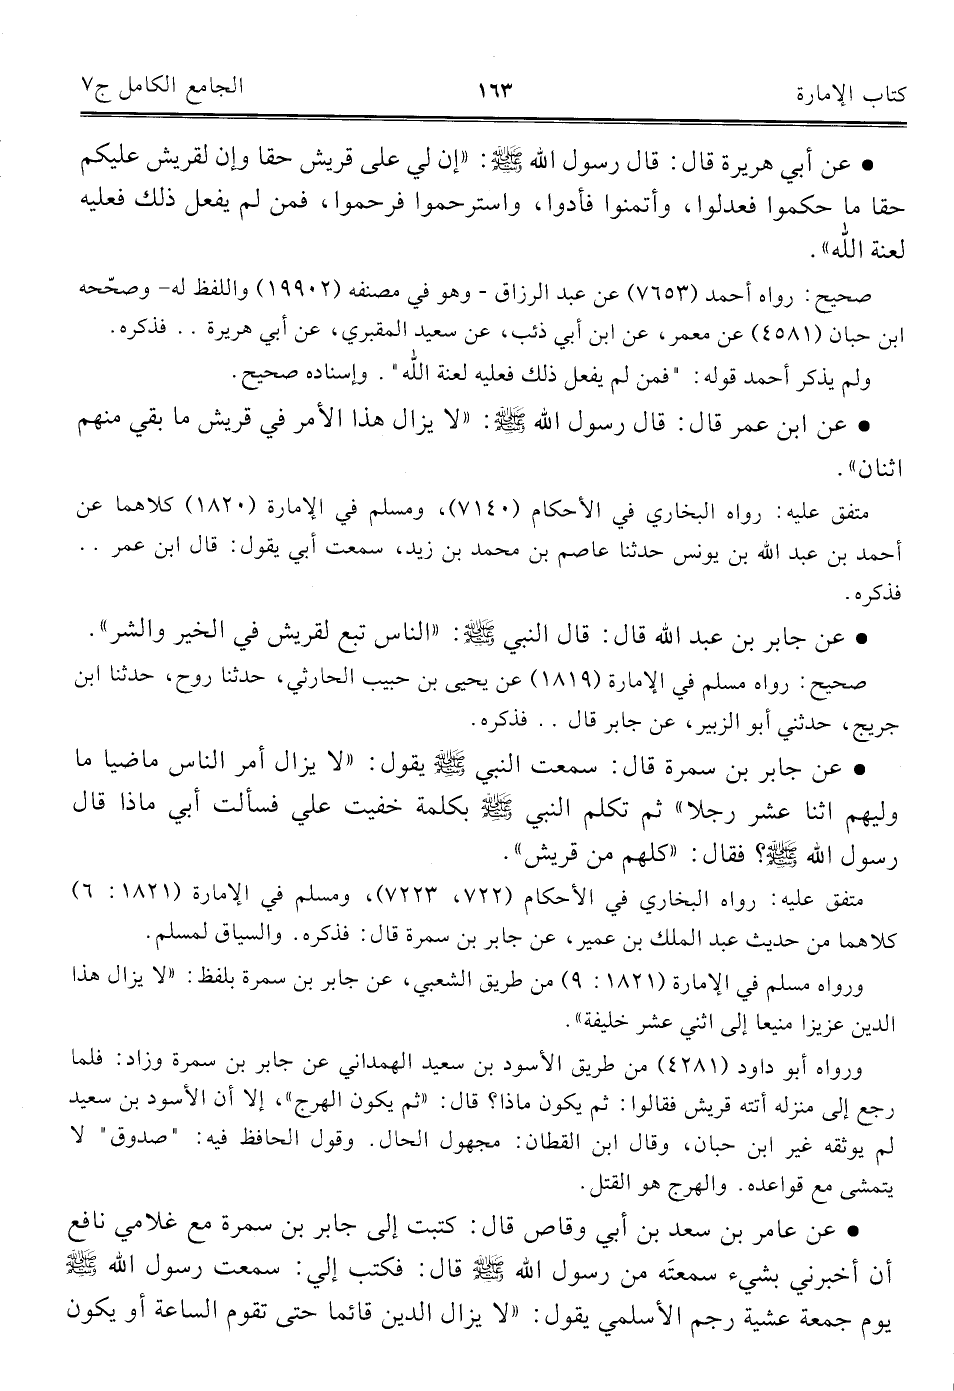 كتاب الإمارة ١٦٣ الجامع الكامل ج٧
• عن أبي هريرة قال: قال رسول الله ﷺ: «إن لي على قريش حقا وإن لقريش عليكم
حقا ما حكموا فعدلوا، وأتمنوا فأدوا، واسترحموا فرحموا، فمن لم يفعل ذلك فعليه
لعنة الله».
صحيح: رواه أحمد (٧٦٥٣) عن عبد الرزاق - وهو في مصنفه (١٩٩٠٢) واللفظ له- وصحّحه
ابن حبان (٤٥٨١) عن معمر، عن ابن أبي ذئب، عن سعيد المقبري، عن أبي هريرة .. فذكره.
ولم يذكر أحمد قوله: "فمن لم يفعل ذلك فعليه لعنة الله". وإسناده صحيح.
• عن ابن عمر قال: قال رسول الله ﷺ: «لا يزال هذا الأمر في قريش ما بقي منهم
اثنان».
متفق عليه: رواه البخاري في الأحكام (٧١٤٠)، ومسلم في الإمارة (١٨٢٠) كلاهما عن
أحمد بن عبد الله بن يونس حدثنا عاصم بن محمد بن زيد، سمعت أبي يقول: قال ابن عمر ..
فذكره.
• عن جابر بن عبد الله قال: قال النبي ﷺ: «الناس تبع لقريش في الخير والشر».
صحيح: رواه مسلم في الإمارة (١٨١٩) عن يحيى بن حبيب الحارثي، حدثنا روح، حدثنا ابن
جريج، حدثني أبو الزبير، عن جابر قال .. فذكره.
• عن جابر بن سمرة قال: سمعت النبي ﷺ يقول: «لا يزال أمر الناس ماضيا ما
وليهم اثنا عشر رجلا» ثم تكلم النبي ﷺ بكلمة خفيت علي فسألت أبي ماذا قال
رسول الله ﷺ؟ فقال: «كلهم من قريش».
متفق عليه: رواه البخاري في الأحكام (٧٢٢، ٧٢٢٣)، ومسلم في الإمارة (١٨٢١: ٦)
كلاهما من حديث عبد الملك بن عمير، عن جابر بن سمرة قال: فذكره. والسياق لمسلم.
ورواه مسلم في الإمارة (١٨٢١: ٩) من طريق الشعبي، عن جابر بن سمرة بلفظ: «لا يزال هذا
الدين عزيزا منيعا إلى اثني عشر خليفة».
ورواه أبو داود (٤٢٨١) من طريق الأسود بن سعيد الهمداني عن جابر بن سمرة وزاد: فلما
رجع إلى منزله أتته قريش فقالوا: ثم يكون ماذا؟ قال: «ثم يكون الهرج»، إلا أن الأسود بن سعيد
لم يوثقه غير ابن حبان، وقال ابن القطان: مجهول الحال. وقول الحافظ فيه: "صدوق" لا
يتمشى مع قواعده. والهرج هو القتل.
• عن عامر بن سعد بن أبي وقاص قال: كتبت إلى جابر بن سمرة مع غلامي نافع
أن أخبرني بشيء سمعتَه من رسول الله ﷺ قال: فكتب إلي: سمعت رسول الله ﷺ
يوم جمعة عشية رجم الأسلمي يقول: «لا يزال الدين قائما حتى تقوم الساعة أو يكون